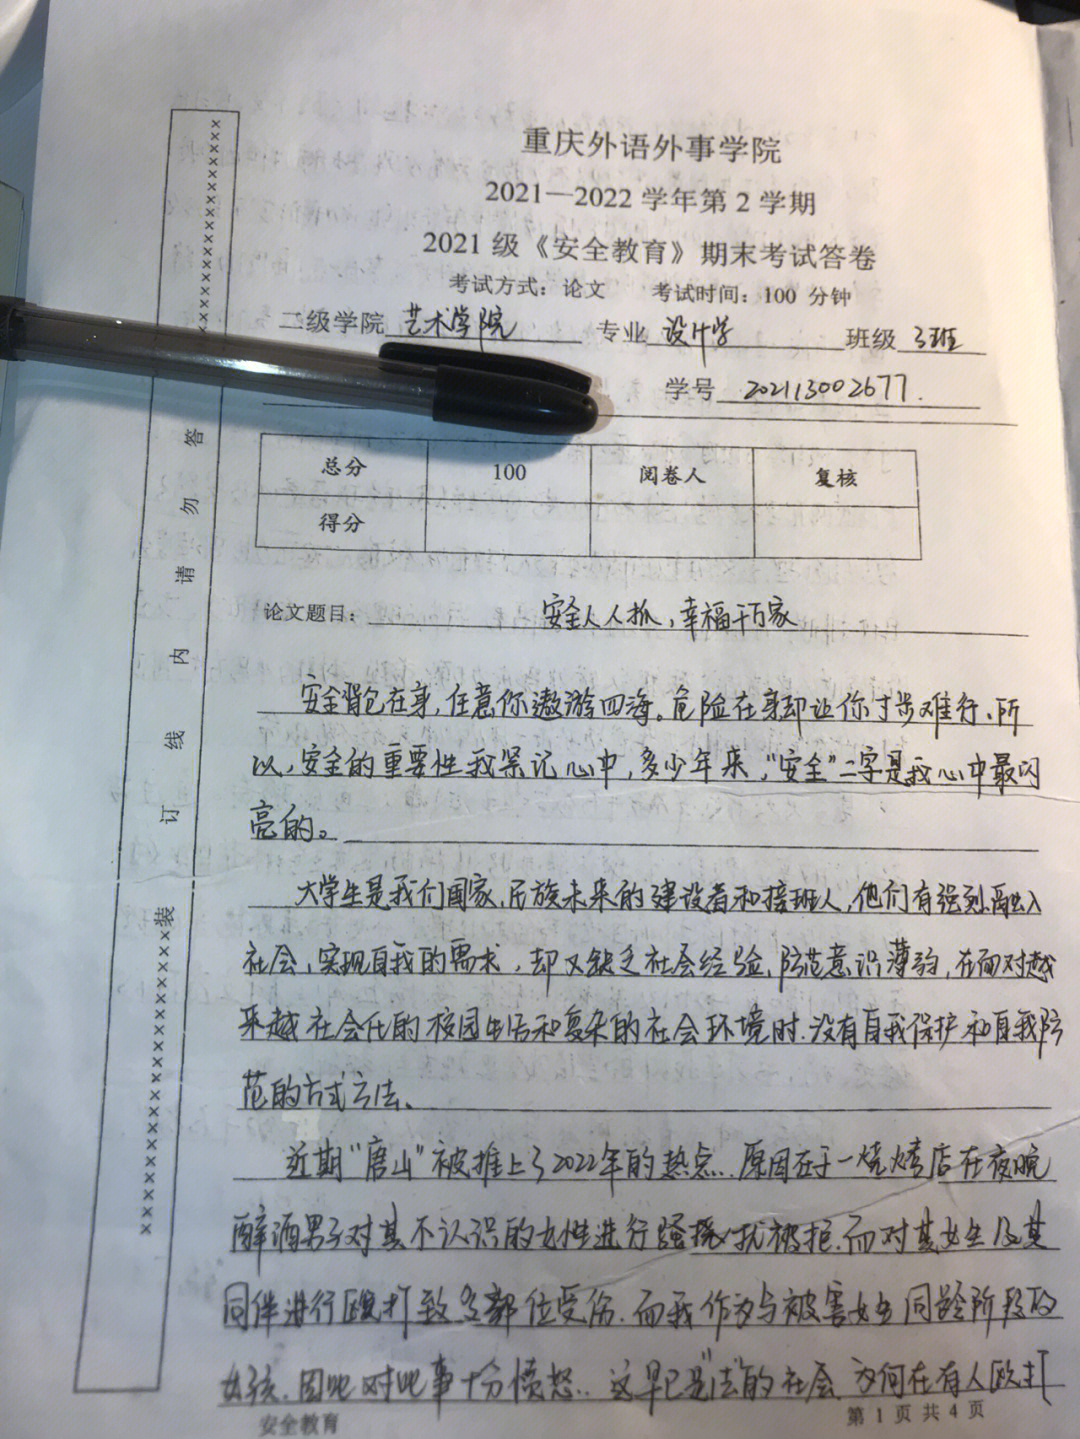 重庆外语外事学院
2021—2022 学年第 2 学期
2021 级《安全教育》期末考试答卷
考试方式：论文 考试时间：100 分钟
二级学院 艺术学院 专业 设计学 班级 3班
学号 202113002677.
总分 100 阅卷人 复核
得分
论文题目： 安全人人抓，幸福千万家
安全背包在身，任意你遨游四海。危险在身却让你寸步难行、所
以，安全的重要性我紧记心中，多少年来，“安全”二字是我心中最闪
亮的。
大学生是我们国家、民族未来的建设者和接班人，他们有强烈融入
社会，实现自我的需求，却又缺乏社会经验，防范意识薄弱，在面对越
来越社会化的校园生活和复杂的社会环境时.没有自我保护和自我防
范的方式方法、
近期“唐山”被推上了2022年的热点..原因在于一烧烤店在夜晚
醉酒男子对其不认识的女性进行骚扰被拒.而对其女生及其
同伴进行殴打致多部位受伤.而我作为与被害女生同龄阶段的
女孩.因此对此事十分愤怒..这早已是“法”的社会.为何在有人欧打
安全教育
第 1 页 共 4 页
装 订 线 内 请 勿 答
××××××××××××××××××
×××××××××××××××××××××